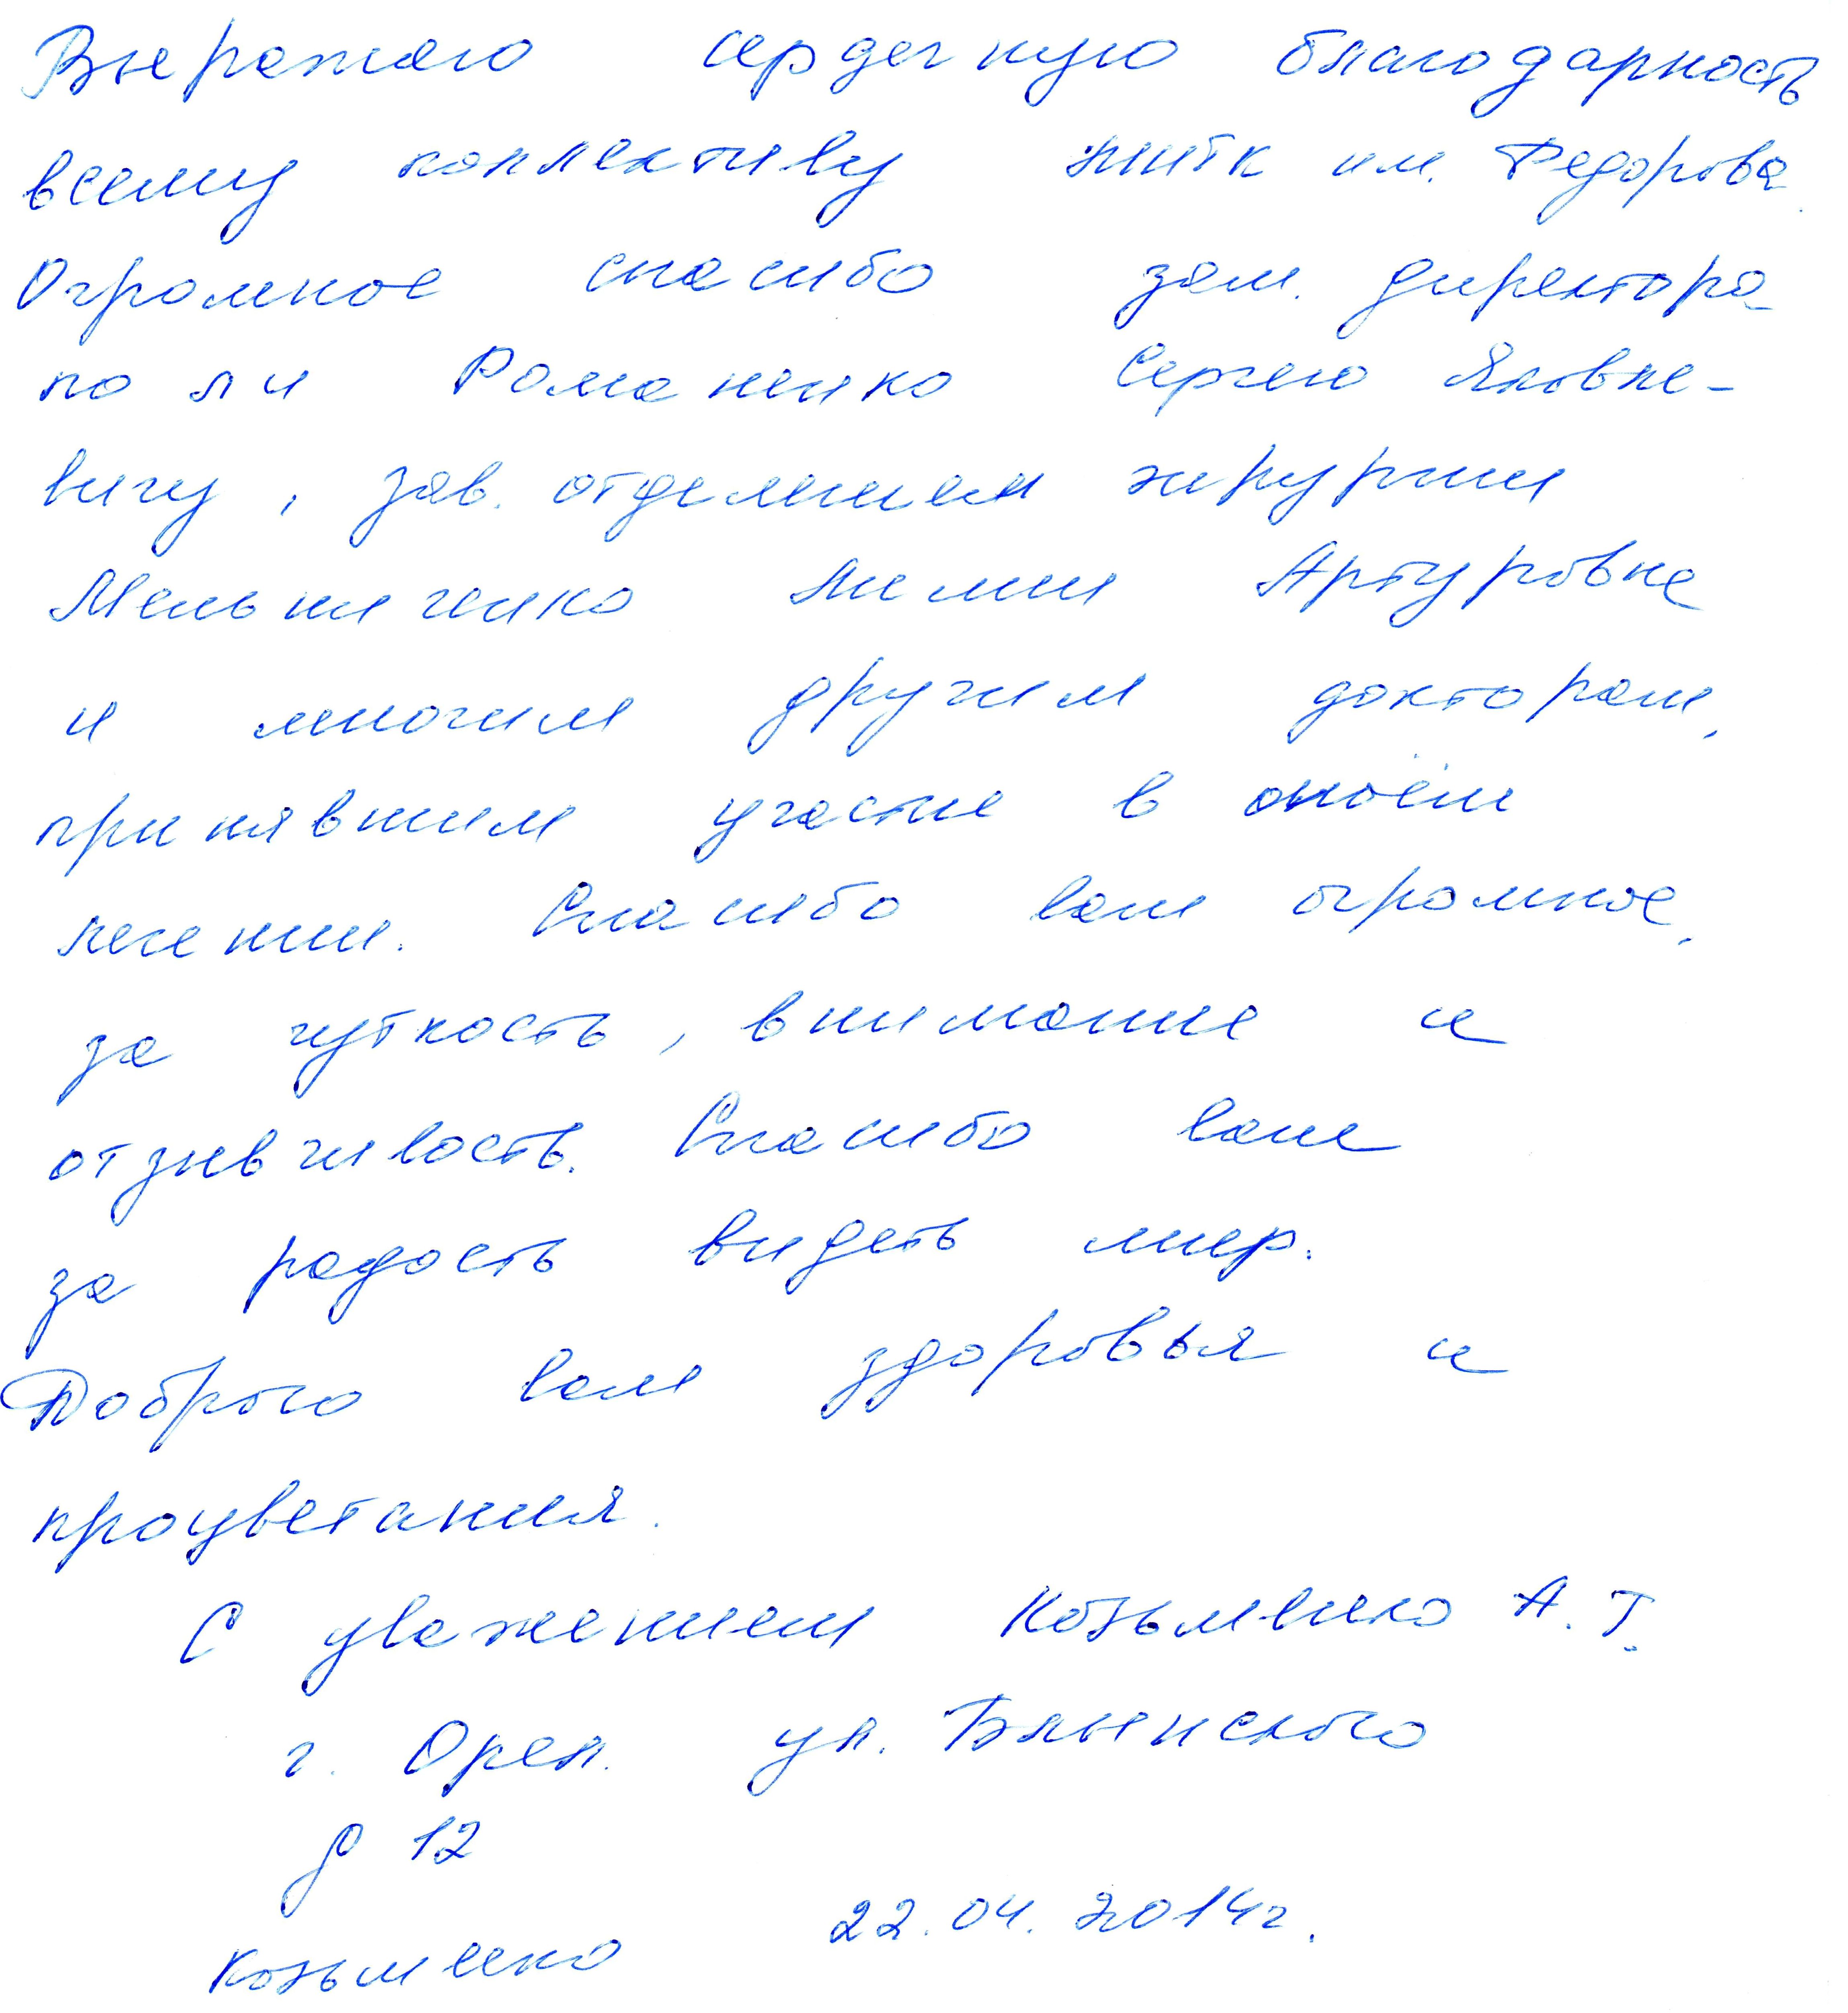 Выражаю сердечную благодарность
всему коллективу МНТК им. Федорова
Огромное спасибо зам. директора
по л и Романенко Сергею Яковле-
вичу, зав. отделением хирургии
Мельниченко Лилии Артуровне
и многим другим докторам,
принявшим участие в моём
лечении. Спасибо вам огромное,
за чуткость, внимание и
отзывчивость. Спасибо вам
за радость видеть мир.
Доброго вам здоровья и
процветания.
С уважением Козьменко А. Т.
г. Орел. ул.
д 12
22.04.2014г.
Козьменко